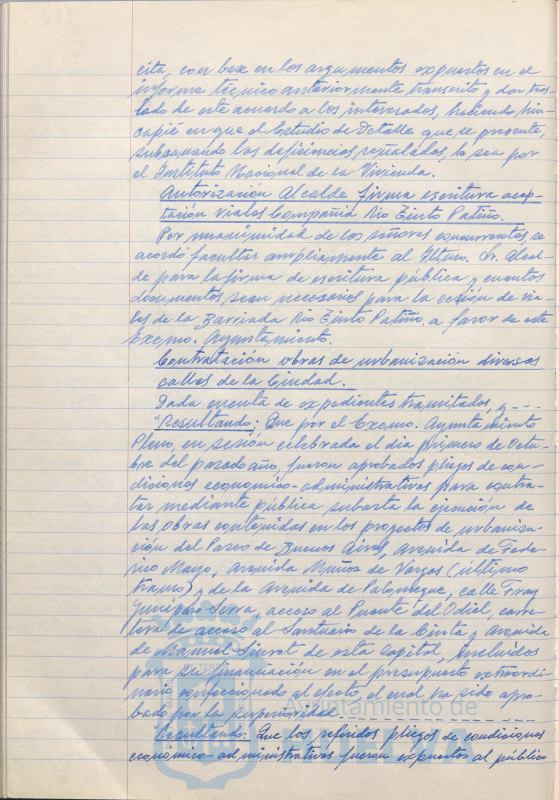 cita, con base en los argumentos expuestos en el
informe técnico anteriormente transcrito y dar tras-
lado de este acuerdo a los interesados, haciendo hin-
capié en que el Estudio de Detalle que se presente,
subsanando las deficiencias señaladas, lo sea por
el Instituto Nacional de la Vivienda.
Autorización Alcalde firma escritura acep-
tación viales Compañía Rio Tinto Patiño.
Por unanimidad de los señores concurrentes, se
acordó facultar ampliamente al Iltmo. Sr. Alcal-
de para la firma de escritura pública y cuantos
documentos, sean necesarios para la cesión de via-
les de la Barriada Rio Tinto Patiño, a favor de este
Excmo. Ayuntamiento.
Contratación obras de urbanización diversas
calles de la Ciudad.
Dada cuenta de expedientes tramitados, y ---
"Resultando: Que por el Excmo. Ayuntamiento
Pleno, en sesión celebrada el dia primero de Octu-
bre del pasado año, fueron aprobados pliegos de con-
diciones economico-administrativas para contra-
tar mediante pública subasta la ejecución de
las obras contenidas en los proyectos de urbaniza-
ción del Paseo de Buenos Aires, avenida de Fede-
rico Mayo, Avenida Muñoz de Vargas (último
tramo) y de la Avenida de Palomeque, calle Fray
Junípero Serra, acceso al Puente del Odiel, carre-
tera de acceso al Santuario de la Cinta y Avenida
de Manuel Siurot de esta capital, incluidos
para su financiación en el presupuesto extraordi-
nario confeccionado al efecto, el cual ha sido apro-
bado por la superioridad.
Ayuntamiento de
Resultando: Que los referidos pliegos de condiciones
económico-administrativas fueron expuestos al público